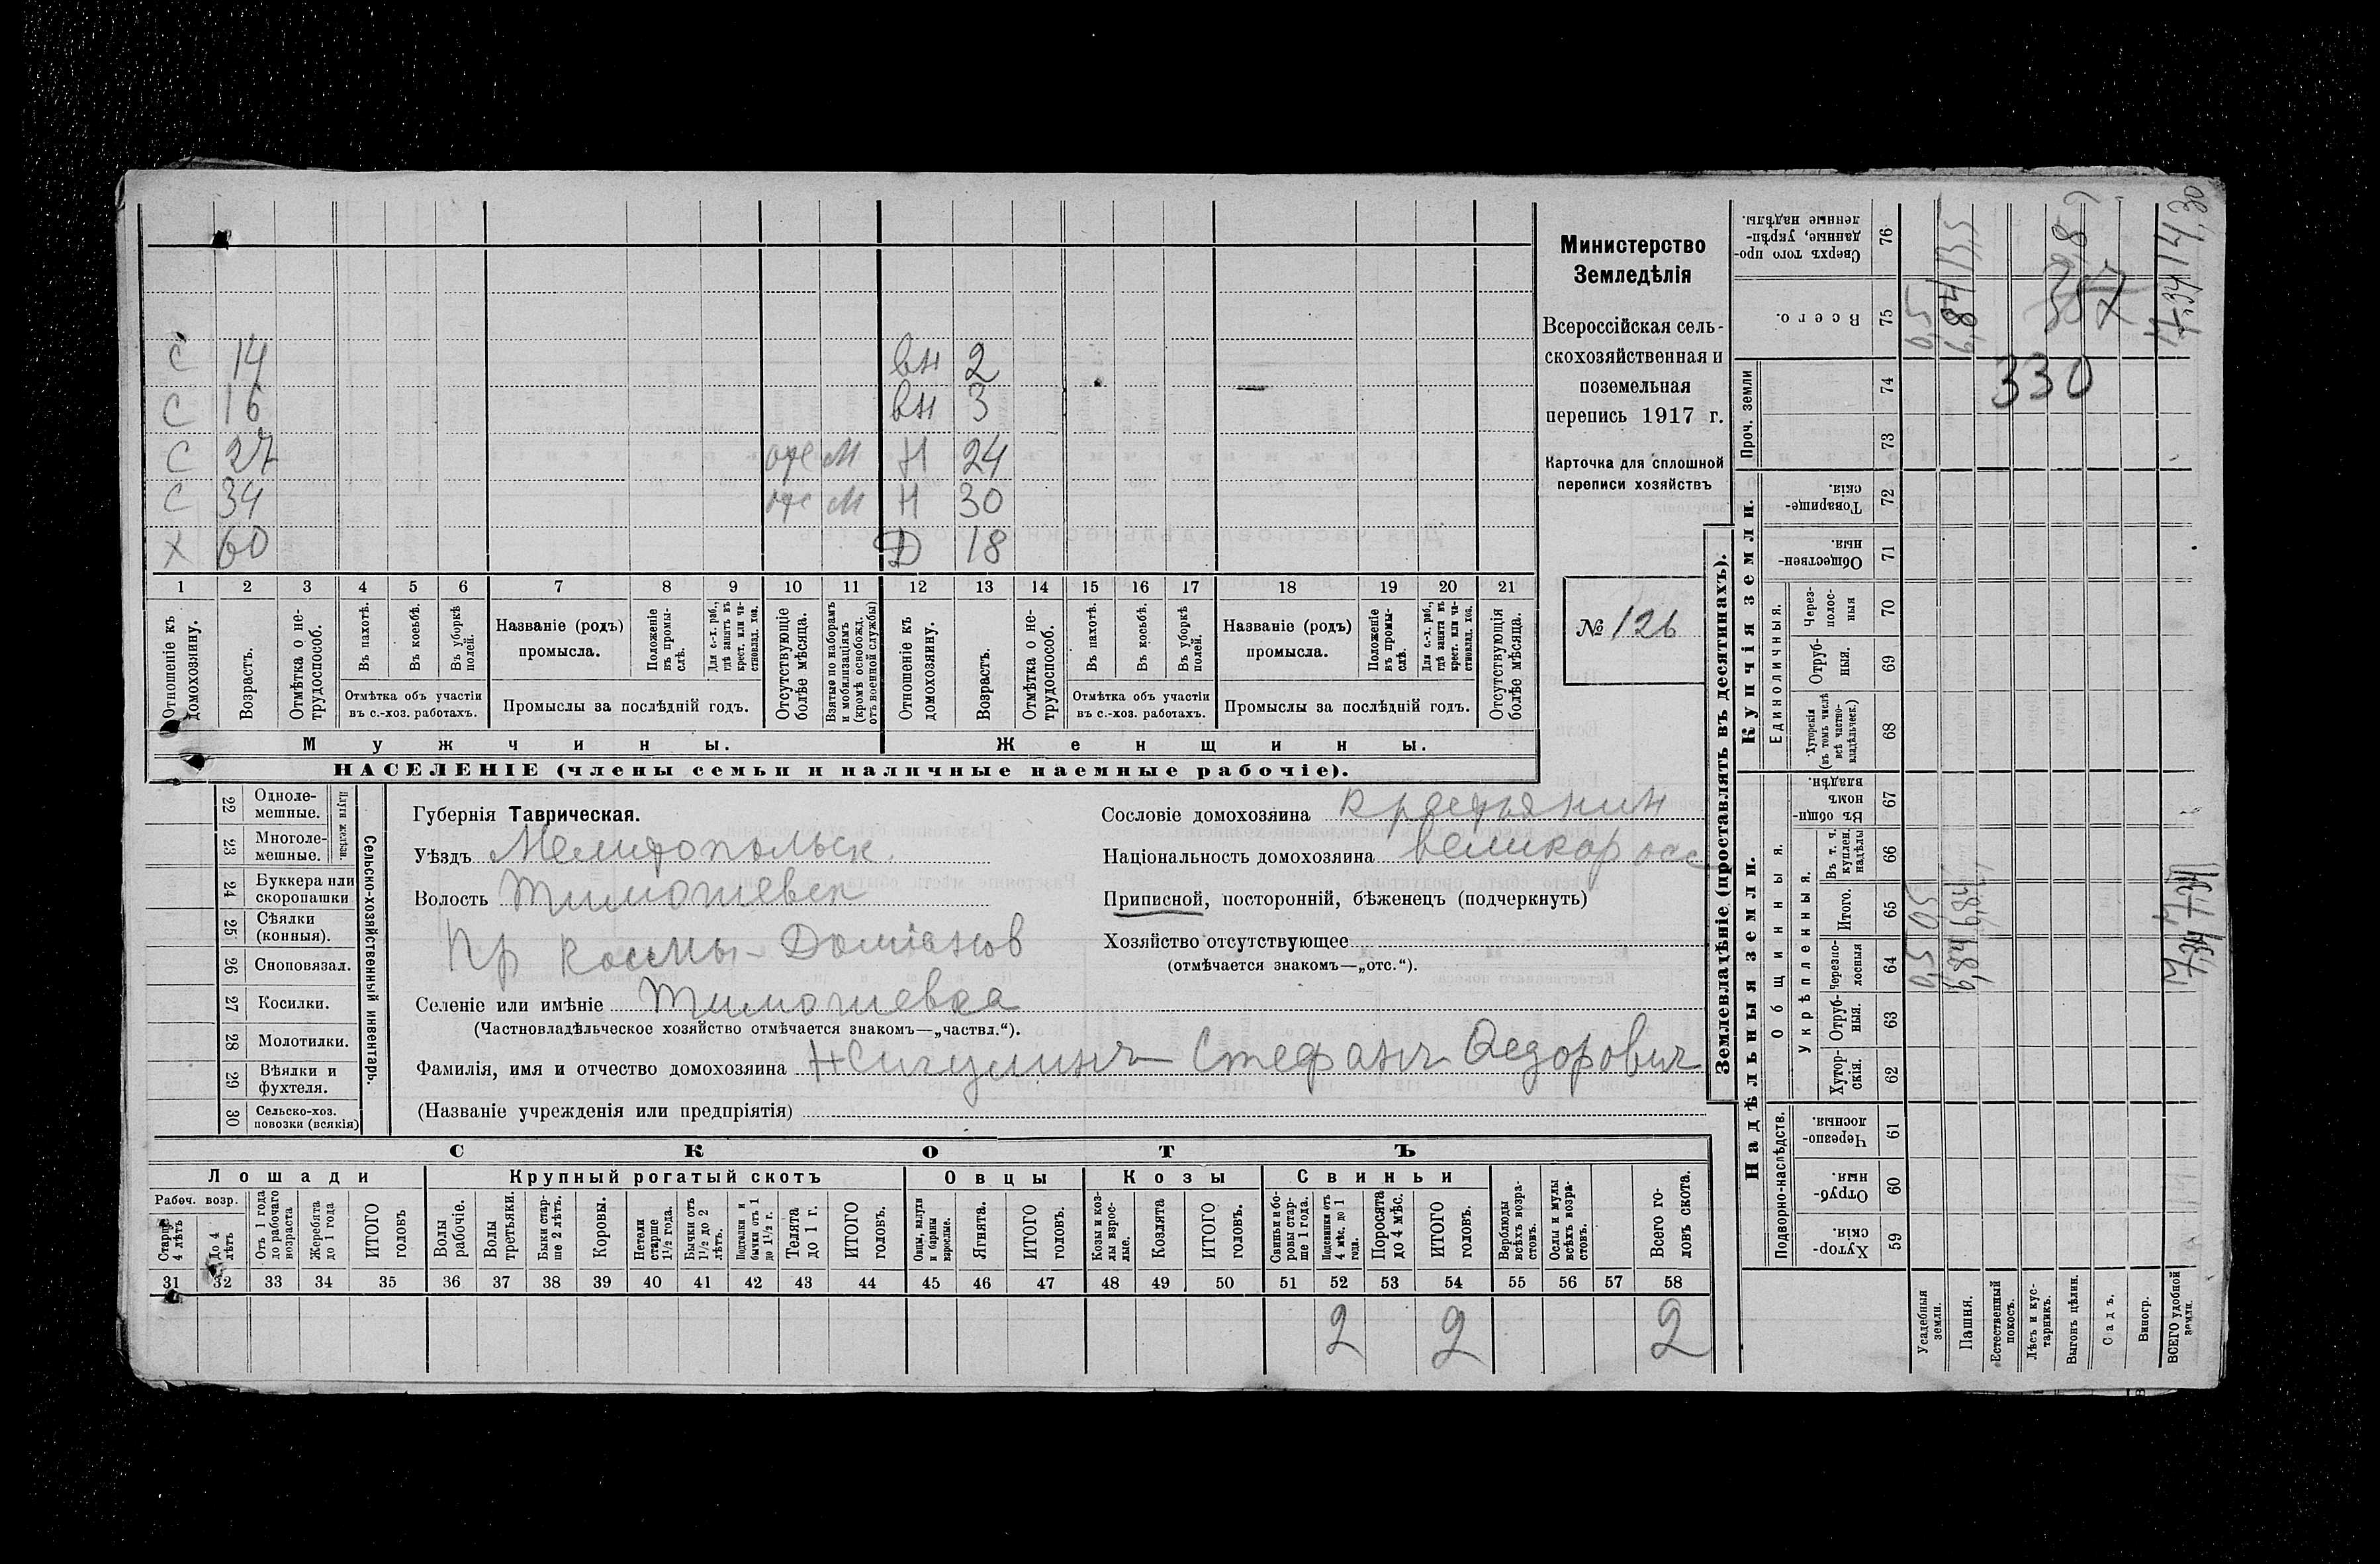 С 14 вн 2
С 16 вн 3
С 27 отс М Н 24
С 34 отс М Н 30
Х 60 Д 18
1 2 3 4 5 6 7 8 9 10 11 12 13 14 15 16 17 18 19 20 21
Отношеніе къ домохозяину.
Возрастъ.
Отмѣтка о не-трудоспособ.
Въ пахотѣ.
Въ косьбѣ.
Въ уборкѣ полей.
Отмѣтка объ участіи
въ с.-хоз. работахъ.
Названіе (родъ)
промысла.
Положеніе въ промы-слѣ.
Для с.-х. раб., гдѣ занятъ въ крест. или ча-стновлад. хоз.
Промыслы за послѣдній годъ.
Отсутствующіе болѣе мѣсяца.
Взятые по наборамъ и мобилизаціямъ (кромѣ освобожд. отъ военной службы)
Отношеніе къ домохозяину.
Возрастъ.
Отмѣтка о не-трудоспособ.
Въ пахотѣ.
Въ косьбѣ.
Въ уборкѣ полей.
Отмѣтка объ участіи
въ с.-хоз. работахъ.
Названіе (родъ)
промысла.
Положеніе въ промы-слѣ.
Для с.-х. раб., гдѣ занятъ въ крест. или ча-стновлад. хоз.
Промыслы за послѣдній годъ.
Отсутствующія болѣе мѣсяца.
Мужчины. Женщины.
НАСЕЛЕНІЕ (члены семьи и наличные наемные рабочіе).
Министерство
Земледѣлія
Всероссійская сель-
скохозяйственная и
поземельная
перепись 1917 г.
Карточка для сплошной
переписи хозяйствъ
№ 126
22 Одноле-мешные.
23 Многоле-мешные.
Плуги желѣзн.
24 Буккера или скоропашки
25 Сѣялки (конныя).
26 Сноповязал.
27 Косилки.
28 Молотилки.
29 Вѣялки и фухтеля.
30 Сельско-хоз. повозки (всякія)
Сельско-хозяйственный инвентарь.
Губернія Таврическая.
Уѣздъ Мелитопольск.
Волость Тимошевск
Пр Космы-Доміанов
Селеніе или имѣніе Тимошевка
(Частновладѣльческое хозяйство отмѣчается знакомъ—„частвл.“).
Фамилія, имя и отчество домохозяина Жигулинъ Стефанъ Федорович
(Названіе учрежденія или предпріятія)
Сословіе домохозяина крестьянин
Національность домохозяина великоросс
Приписной, посторонній, бѣженецъ (подчеркнуть)
Хозяйство отсутствующее
(отмѣчается знакомъ—„отс.“).
СКОТЪ
Лошади Крупный рогатый скотъ Овцы Козы Свиньи
Рабоч. возр.
Старше 4 лѣтъ
До 4 лѣтъ
Отъ 1 года до рабочаго возраста
Жеребята до 1 года
ИТОГО головъ
Волы рабочіе.
Волы третьяки.
Быки стар-ше 2 лѣтъ.
Коровы.
Нетели старше 1½ года.
Бычки отъ 1½ до 2 лѣтъ.
Подтелки и бычки отъ 1 до 1½ г.
Телята до 1 г.
ИТОГО головъ.
Овцы, валухи и бараны взрослые.
Ягнята.
ИТОГО головъ.
Козы и коз-лы взрос-лые.
Козлята
ИТОГО головъ.
Свиньи и бо-ровы стар-ше 1 года.
Подсвинки отъ 4 мѣс. до 1 года.
Поросята до 4 мѣс.
ИТОГО головъ.
Верблюды всѣхъ возра-стовъ.
Ослы и мулы всѣхъ возра-стовъ.
Всего го-ловъ скота.
31 32 33 34 35 36 37 38 39 40 41 42 43 44 45 46 47 48 49 50 51 52 53 54 55 56 57 58
2 2 2
Землевладѣніе (проставлять въ десятинахъ).
Надѣльныя земли. Купчія земли. Проч. земли
Подворно-наслѣдств.
Общинныя.
Укрѣпленныя.
Единоличныя.
Хутор-скія. 59
Отруб-ныя. 60
Черезпо-лосныя. 61
Хутор-скія. 62
Отруб-ныя. 63
Черезпо-лосныя 64
Итого. 65
Въ т. ч. куплен. надѣлы 66
Въ общин-номъ владѣн. 67
Хуторскія (въ томъ числѣ всѣ частно-владѣльческ.) 68
Отруб-ныя. 69
Через-полос-ныя 70
Обществен-ныя. 71
Товарище-скія. 72
73
74
Всего. 75
Сверхъ того про-данные, укрѣп-ленные надѣлы. 76
Усадебныя земли. 0,5 0,5 0,5
Пашня. 6,84 6,84 6,84 13,5
Естественный покосъ.
Лѣсъ и кус-тарникъ.
Выгонъ цѣлин.
Садъ.
Виногр.
ВСЕГО удобной земли. 7,34 7,34 7,34 14,30
330